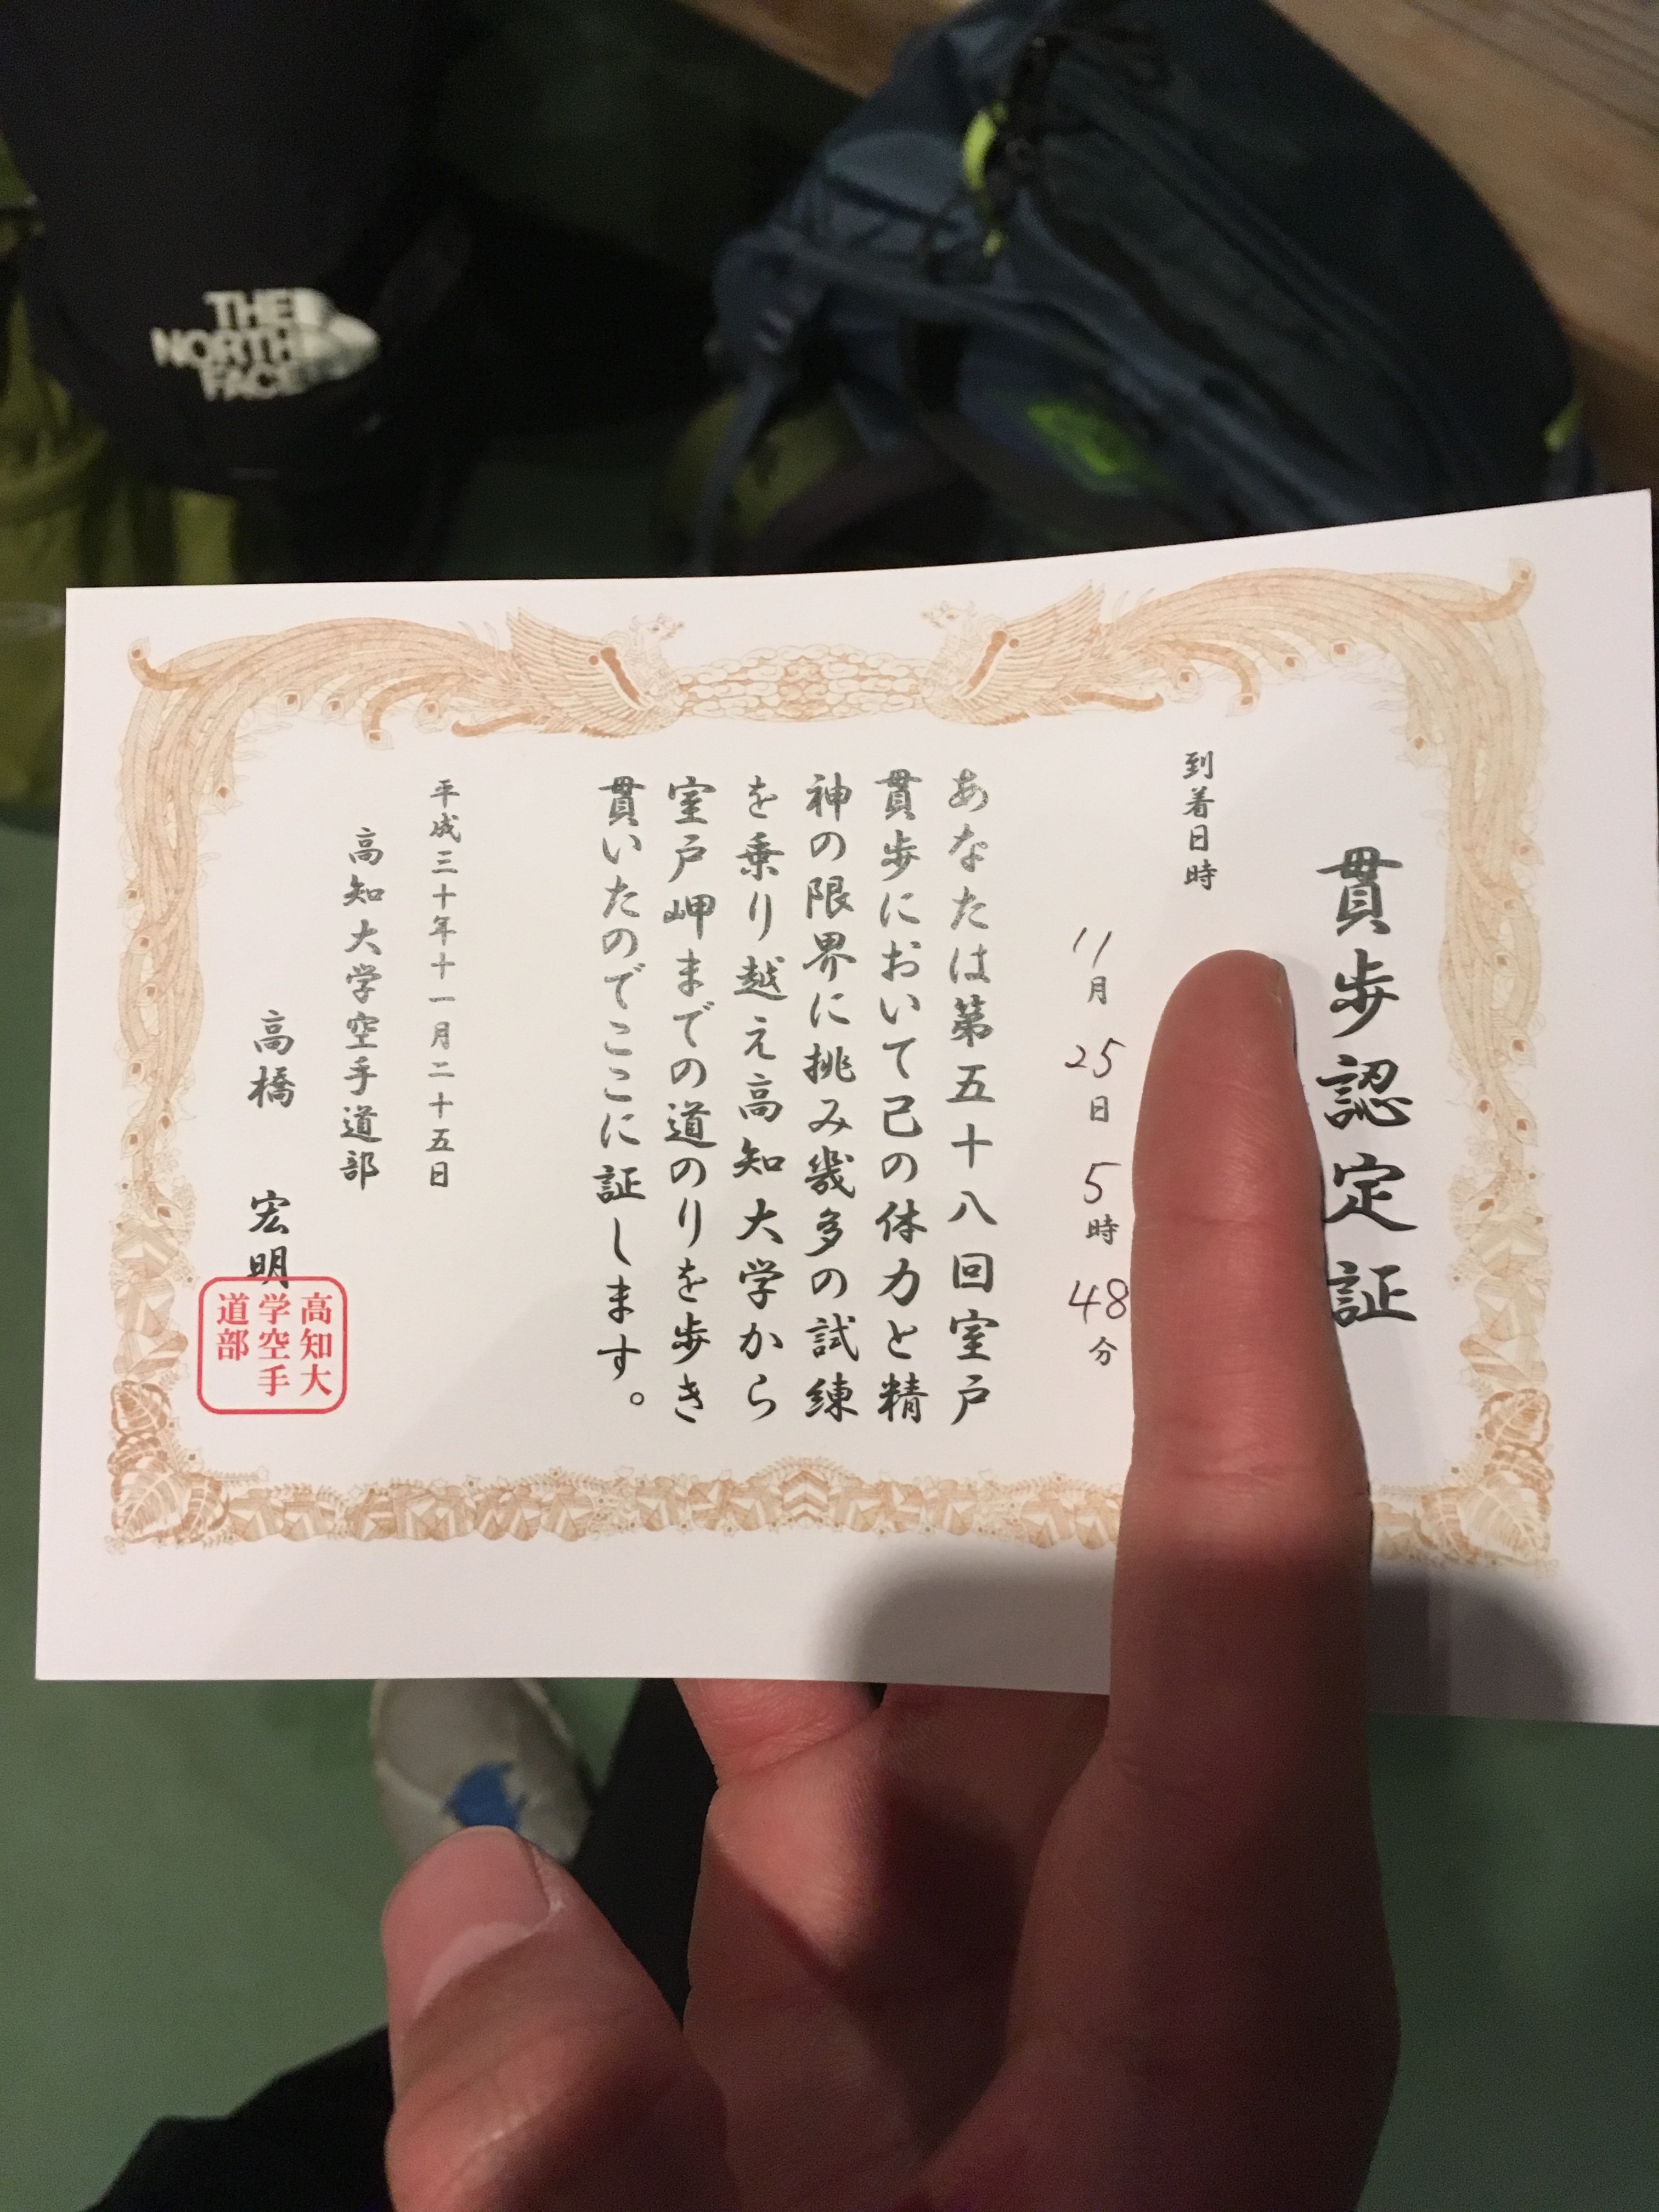 THE
NORTH
FACE
貫歩認定証
到着日時
11月25日5時48分
あなたは第五十八回室戸
貫歩において己の体力と精
神の限界に挑み幾多の試練
を乗り越え高知大学から
室戸岬までの道のりを歩き
貫いたのでここに証します。
平成三十年十一月二十五日
高知大学空手道部
高橋 宏明
高知大
学空手
道部